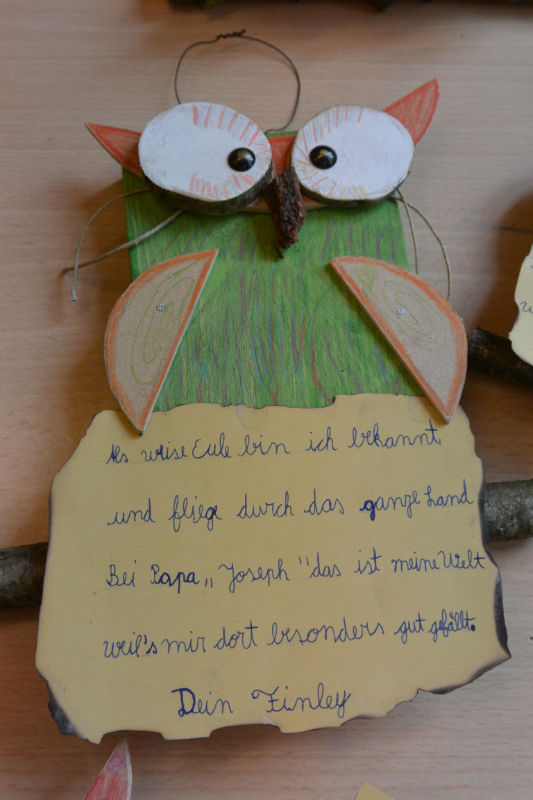 Als weise Eule bin ich bekannt,
und fliege durch das ganze Land
Bei Papa „Joseph" das ist meine Welt
weil's mir dort besonders gut gefällt.
Dein Finley